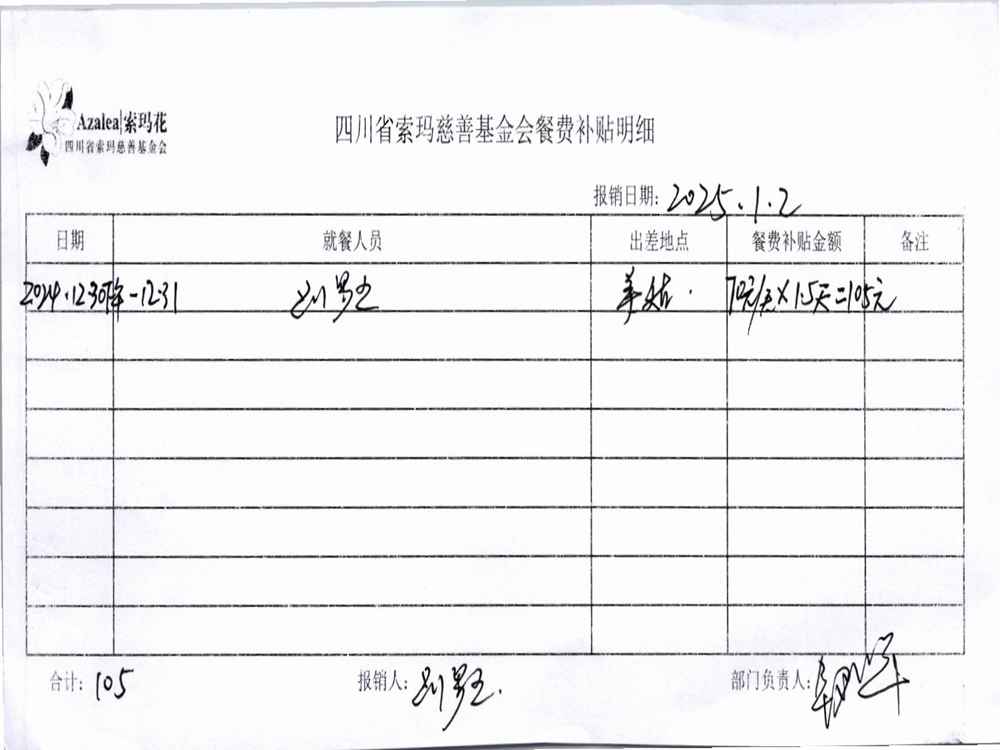 Azalea|索玛花
四川省索玛慈善基金会
四川省索玛慈善基金会餐费补贴明细
报销日期: 2025.1.2
日期 就餐人员 出差地点 餐费补贴金额 备注
2024.12.30下午-12.31 美姑. 70元/天×1.5天=105元
合计: 105 报销人: 部门负责人: